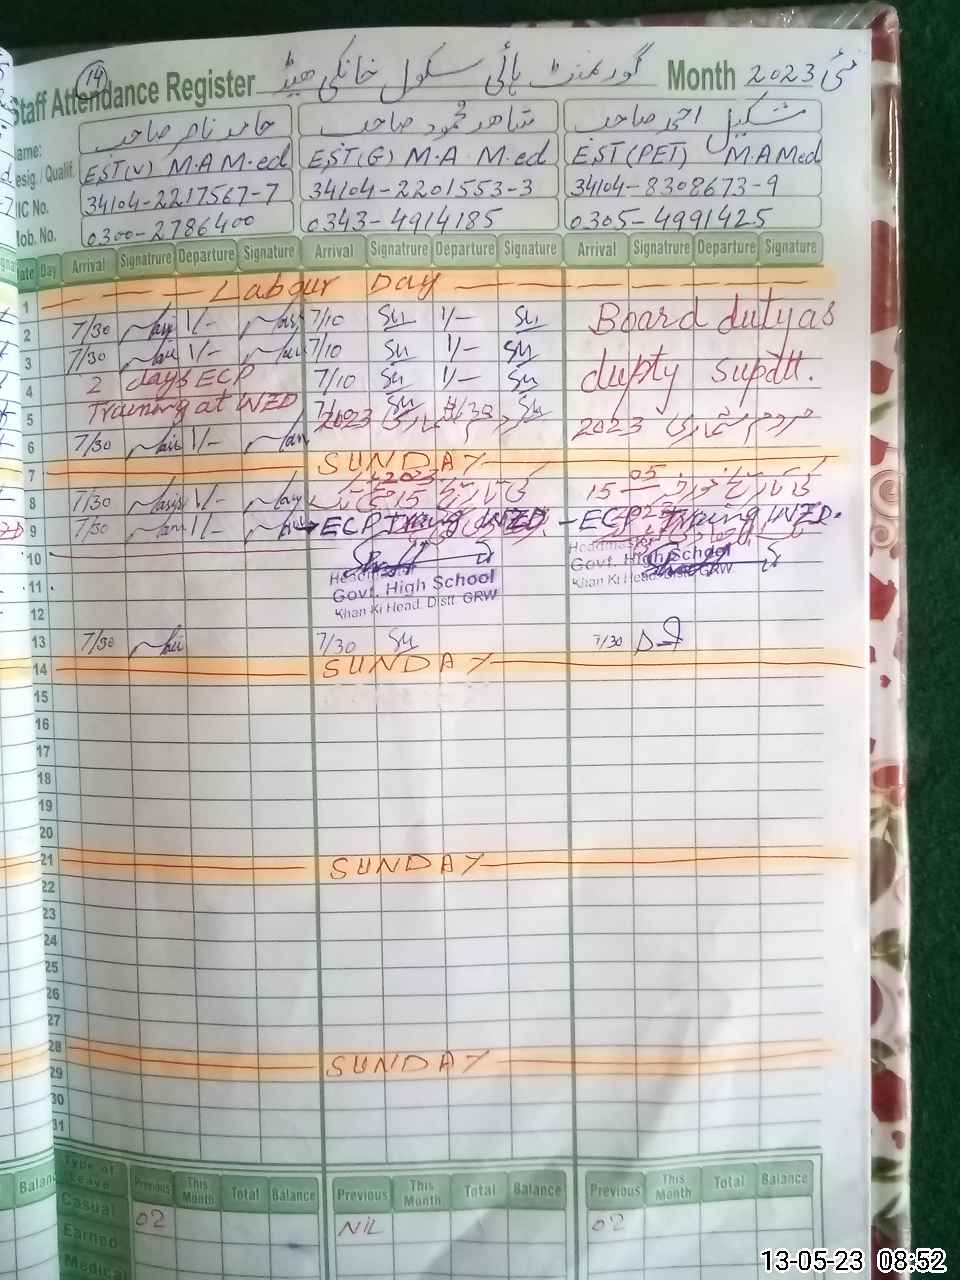 14
Staff Attendance Register گورنمنٹ ہائی سکول خانکی ہیڈ Month مئی 2023
Name: حامد ناصر صاحب شاھد محمود صاحب شکیل احمد صاحب
Desig./Qualif. EST(V) M.A M.ed EST(G) M.A M.ed EST(PET) M.A M.ed
NIC No. 34104-2217567-7 34104-2201553-3 34104-8308673-9
Mob. No. 0300-2786400 0343-4914185 0305-4991425
Date Day Arrival Signatrure Departure Signature Arrival Signatrure Departure Signature Arrival Signatrure Departure Signature
1 Labour Day
2 7/30 1/- 7/10 1/- Board duty as
3 7/30 1/- 7/10 1/- dupty supdtt.
4 2 days ECP 7/10 1/-
5 Training at WZD 2023 مردم شماری 2023
6 7/30 1/-
7 SUNDAY
8 7/30 1/- 15 15 05
9 7/30 1/- ECP Traing WZD. - ECP Traing WZD.
10 Headmaster Headmaster
11 Govt. High School Govt. High School
12 Khan Ki Head. Distt GRW Khan Ki Head. Distt GRW
13 7/30 7/30 7/30
14 SUNDAY
15
16
17
18
19
20
21 SUNDAY
22
23
24
25
26
27
28 SUNDAY
29
30
31
Type of Leave Previous This Month Total Balance Previous This Month Total Balance Previous This Month Total Balance
Casual 02 NIL 02
Earned
Medical
13-05-23 08:52